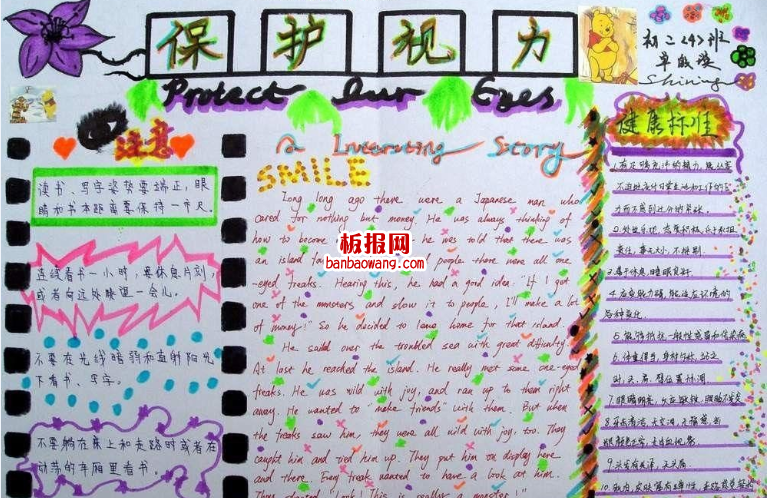 保护视力
初二<4>班
Shining
Protect Our Eyes
注意
读书、写字姿势要端正,眼
睛和书本距离要保持一个尺
连续看书一小时,要休息片刻,
或者向远处眺望一会儿。
不要在光线暗弱和直射阳光
下看书、写字。
不要躺在床上和走路时或者在
动荡的车厢里看书。
A Interesting Story
SMILE
Long long ago there were a Japanese man who
cared for nothing but money. He was always thinking of
how to become he was told that there was
an island far people there were all one-
eyed freaks. Hearing this, he had a good idea. "If I got
one of the monsters and show it to people, I'll make a lot
of money!" So he decided to leave home for that island.
He sailed over the troubled sea with great difficulty.
At last he reached the island. He really met some one-eyed
freaks. He was wild with joy, and ran up to them right
away. He wanted to "make friends" with them. But when
the freaks saw him, they were all wild with joy, too. They
caught him and tied him up. They put him on display here
and there. Every freak wanted to have a look at him.
They shouted "Look! This is really a monster!"
板报网
banbaowang.com
健康标准
1.有足够充沛的精力,能从容
不迫地应付日常生活和工作的压
力而不感到过分的紧张。
2.处世乐观,态度积极,乐于承担
责任,事无大小,不挑剔。
3.善于休息,睡眠良好。
4.应变能力强,能适应环境的
各种变化。
5.能够抵抗一般性感冒和传染病
6.体重得当,身材匀称,站立
时,头、肩、臂位置协调
7.眼睛明亮,反应敏锐,眼睑不发炎
8.牙齿清洁,无空洞,无痛感,齿
龈颜色正常,无出血现象。
9.头发有光泽,无头屑。